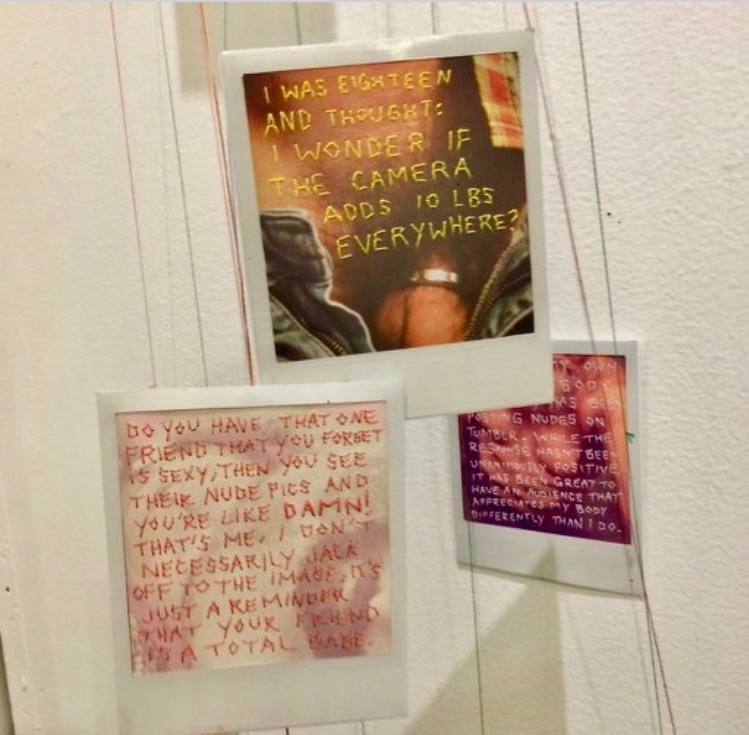 I WAS EIGHTEEN
AND THOUGHT:
I WONDER IF
THE CAMERA
ADDS 10 LBS
EVERYWHERE?
DO YOU HAVE THAT ONE
FRIEND THAT YOU FORGET
IS SEXY, THEN YOU SEE
THEIR NUDE PICS AND
YOU'RE LIKE DAMN!
THAT'S ME. I DON'T
NECESSARILY JACK
OFF TO THE IMAGE. IT'S
JUST A REMINDER
THAT YOUR FRIEND
IS A TOTAL BABE.
MY OWN
BODY
HAS BEEN
POSTING NUDES ON
TUMBLR. WHILE THE
RESPONSE HASN'T BEEN
UNANIMOUSLY POSITIVE,
IT HAS BEEN GREAT TO
HAVE AN AUDIENCE THAT
APPRECIATES MY BODY
DIFFERENTLY THAN I DO.